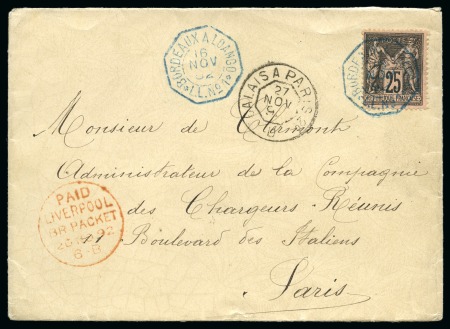 BORDEAUX A LOANGO
16
NOV
92
L.L. No 1
CALAIS A PARIS
27
NOV
25
Monsieur de Clermont
Administrateur de la Compagnie
des Chargeurs-Réunis
11 Boulevard des Italiens
Paris
PAID
LIVERPOOL
BR PACKET
92